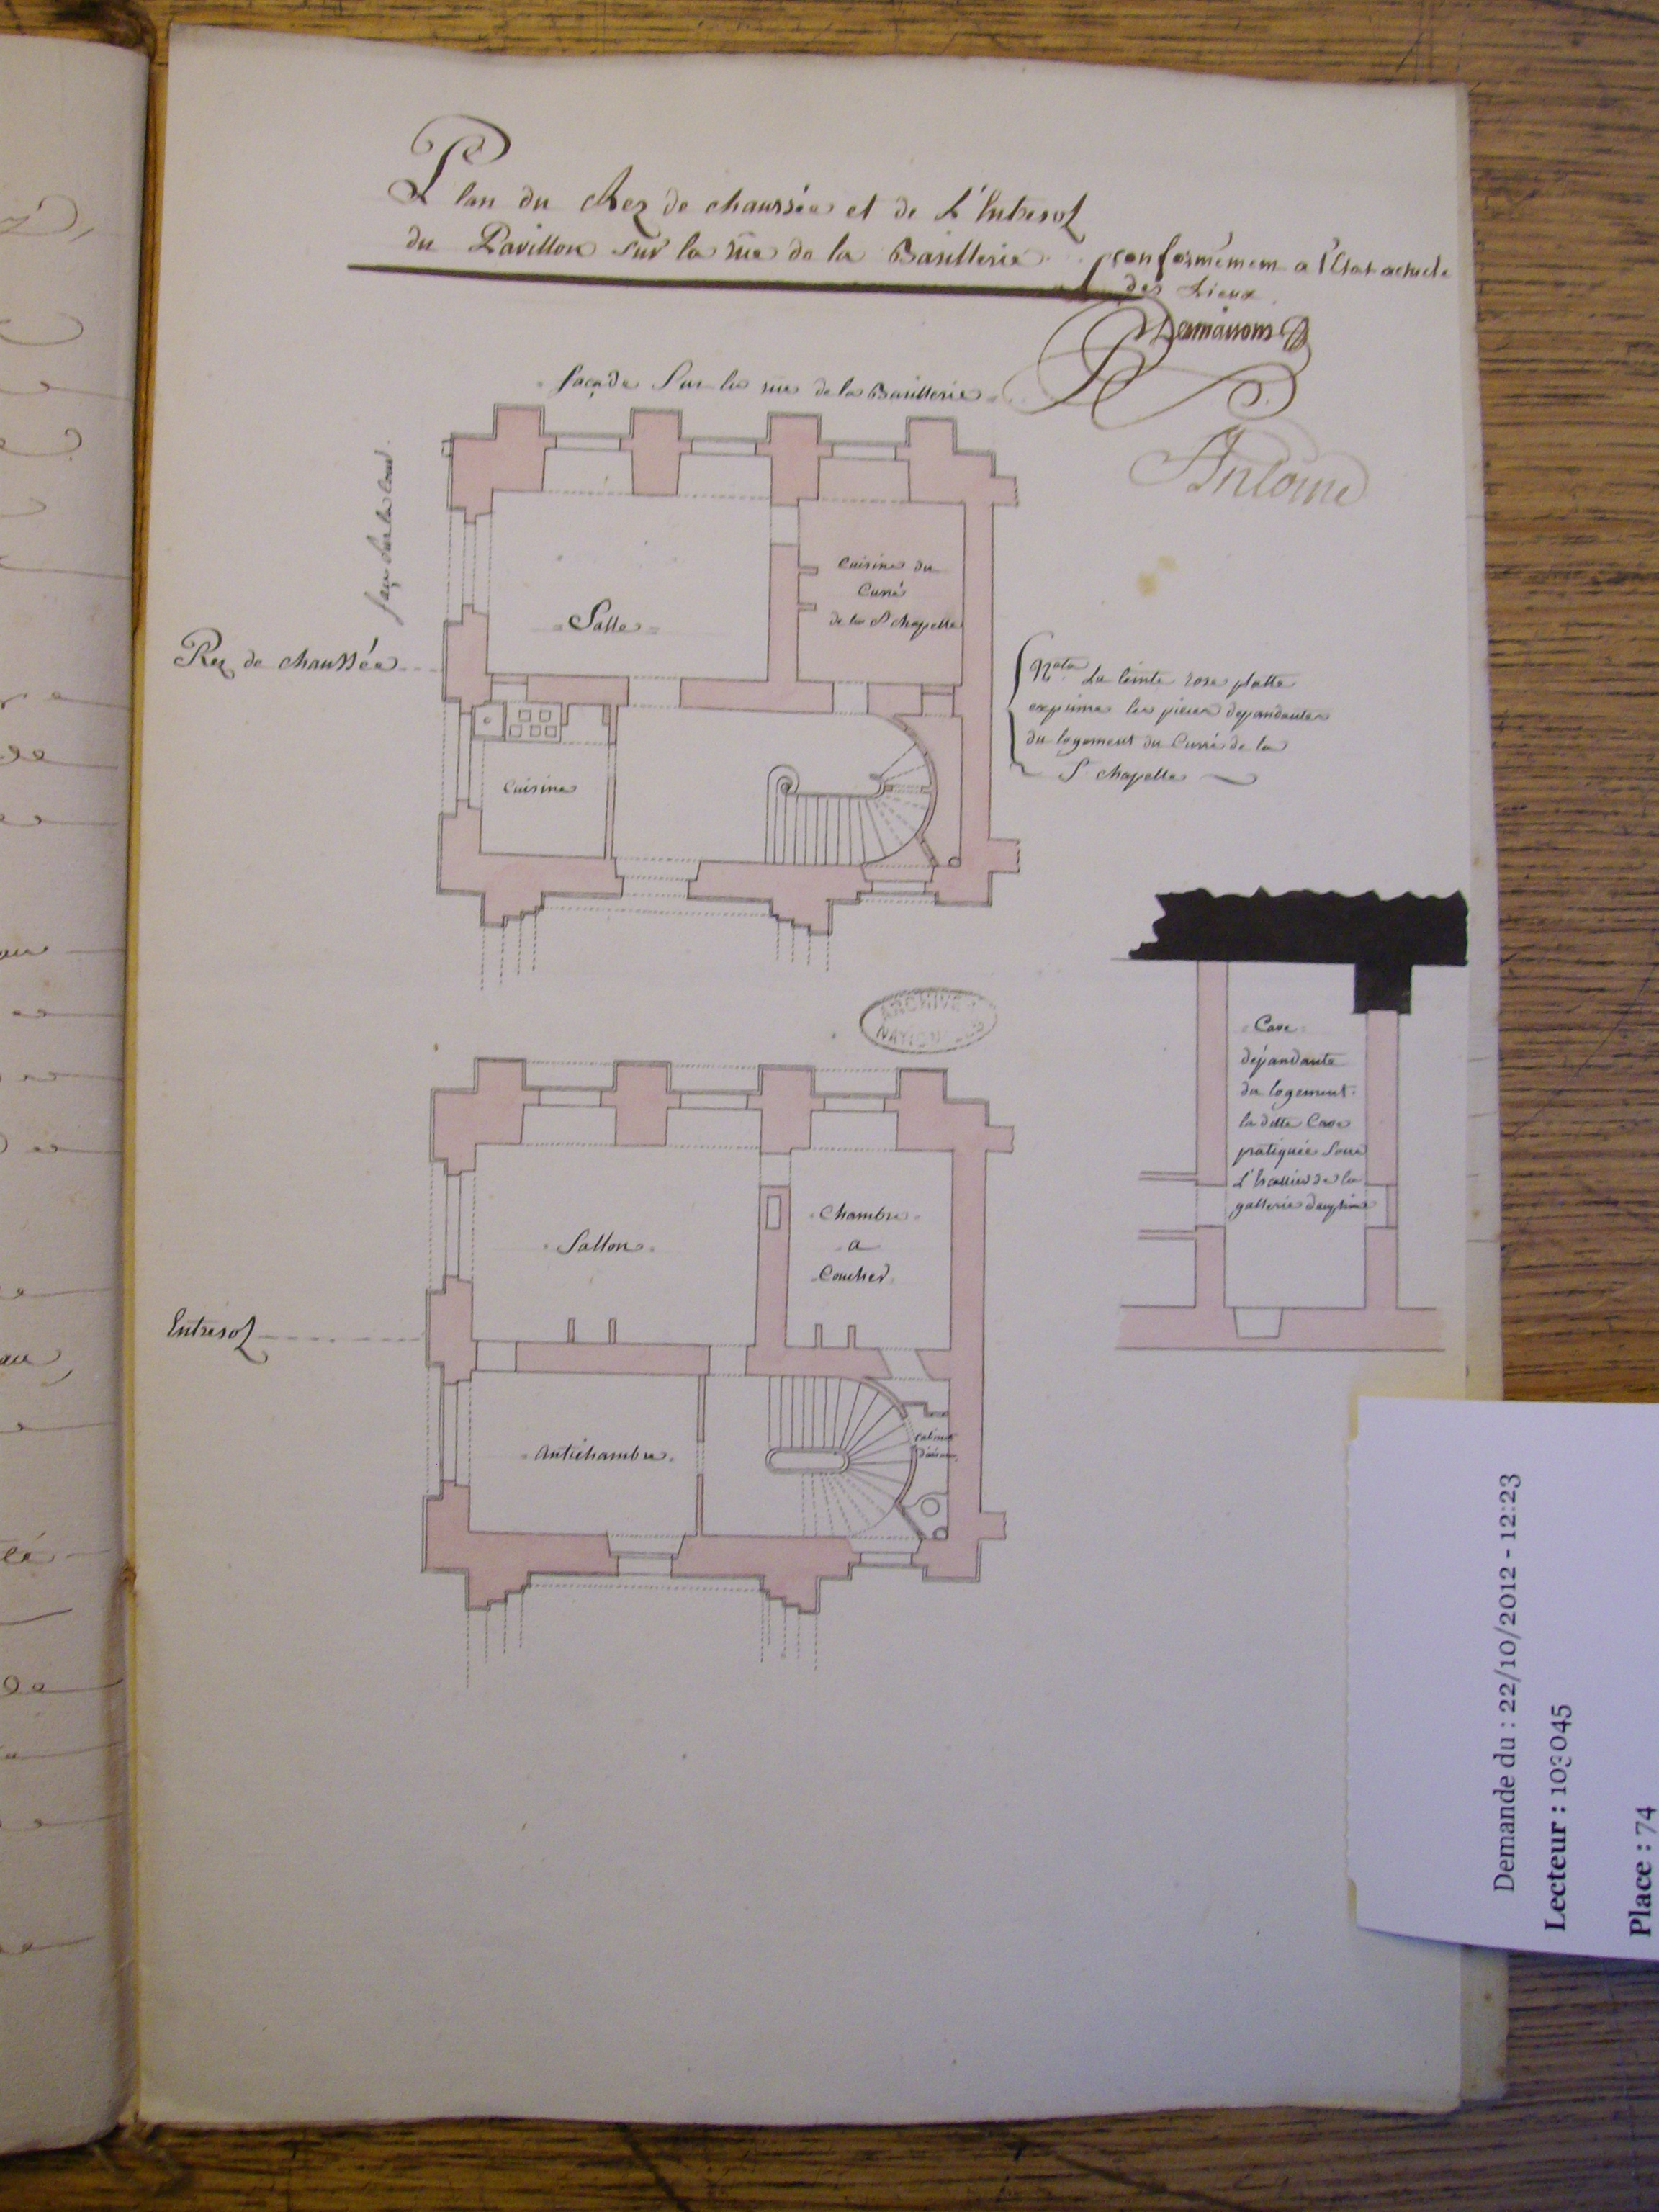 Plan du Rez de chaussée et de L'Entresol
du Pavillon sur la rüe de la Barillerie
conformément a l'Etat actuele
des Lieux
Desmaisons
Antoine
façade Sur la rüe de la Barillerie
face sur la Cour
Salle
Cuisine du
Curé
de la Ste chapelle
Rez de chaussée
Cuisine
Nota La teinte rose platte
exprime les pieces dependantes
du logement du Curé de la
Ste chapelle
ARCHIVES
NATIONALES
Cave
dépendante
du logement
la ditte Cave
pratiquée Sous
L'Escallier de la
gallerie dauphine
Sallon
Chambre
a
Coucher
Entresol
Antichambre
Cabinet
d'aisance
Demande du : 22/10/2012 - 12:23
Lecteur : 103045
Place : 74